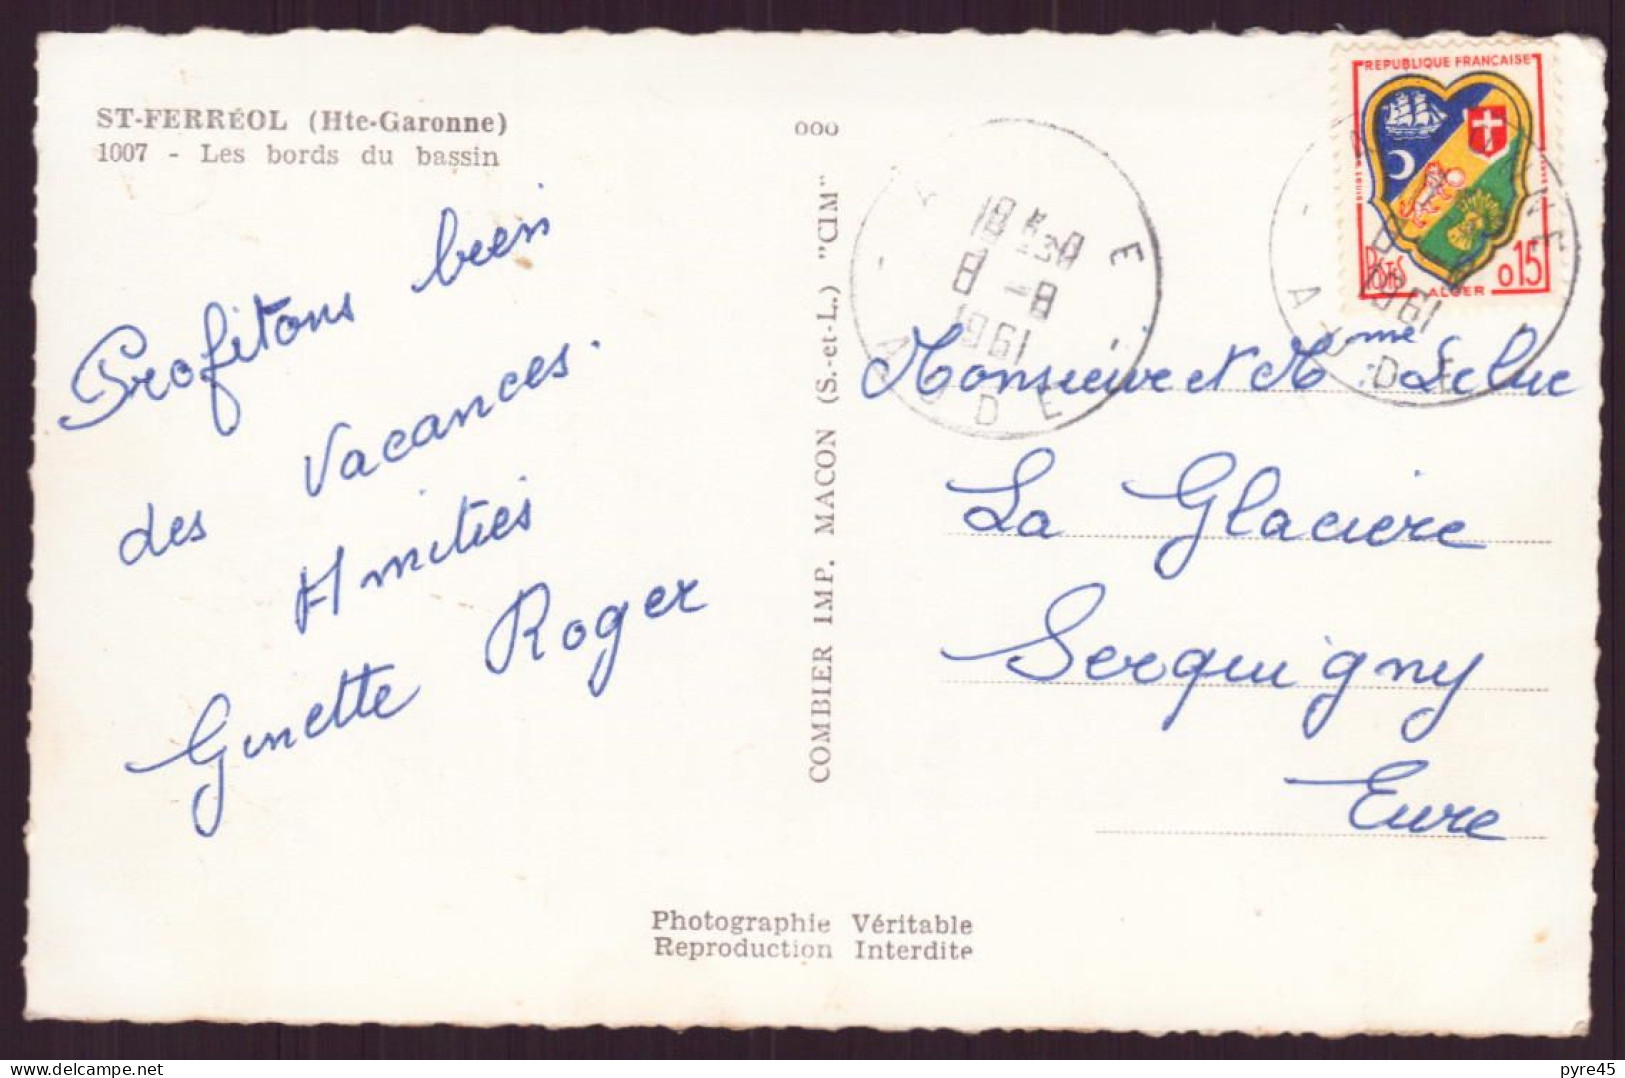 ST-FERRÉOL (Hte-Garonne)
1007 - Les bords du bassin
Profitons bien
des vacances.
Amitiés
Ginette Roger
COMBIER IMP. MACON (S.-et-L.) "CIM"
ooo
18 H 30
8 - 8
1961
AUDE
REPUBLIQUE FRANCAISE
POSTES
ALGER
0,15
1961
AUDE
Monsieur et Mme Leluc
La Glaciere
Serquigny
Eure
Photographie Véritable
Reproduction Interdite
pyre45